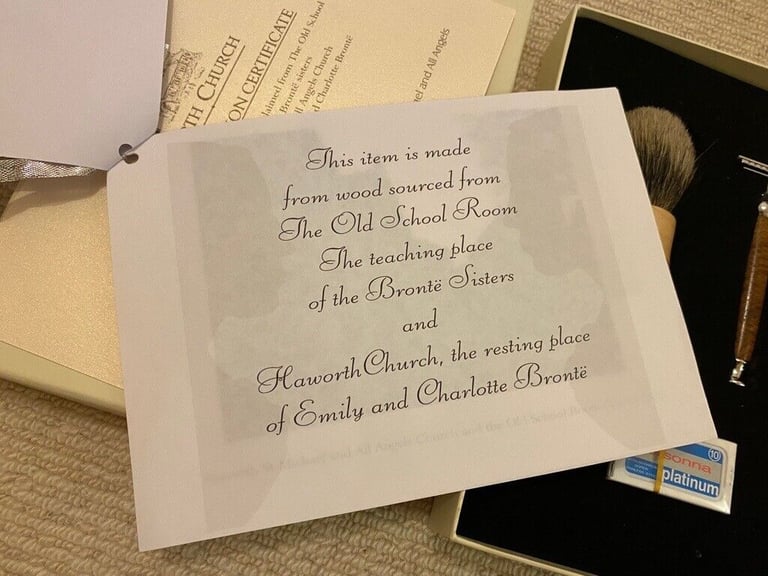 TH CHURCH
ON CERTIFICATE
laimed from The Old School
Brontë sisters
All Angels Church
d Charlotte Brontë
el and All Angels
This item is made
from wood sourced from
The Old School Room
The teaching place
of the Brontë Sisters
and
Haworth Church, the resting place
of Emily and Charlotte Brontë
St Michael and All Angels Church and the Old School Room
10
sonna
platinum